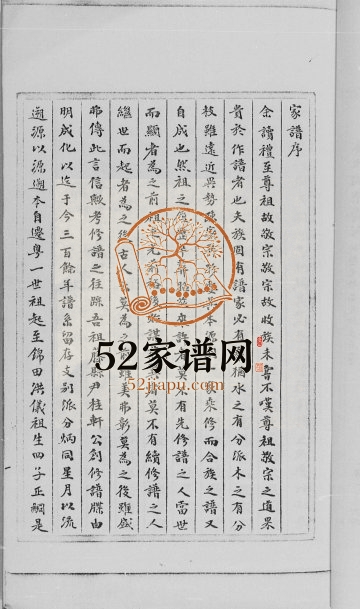 家譜序
余讀禮至尊祖故敬宗敬宗故收族未嘗不嘆尊祖敬宗之道果
貴於作譜者也夫族固有譜家必有猶水之有分派木之有分
枝雖遠近異勢本源來修而合族之譜又
自成也然祖之莫不有先修譜之人當世
而顯者為之前莫不有續修譜之人
繼世而起者為之後古人莫為之前雖美弗彰莫為之後雖盛
弗傳此言信歟考修譜之往跡吾祖縣尹桂軒公創修譜牒由
明成化以迄于今三百餘年譜系留存支別派分炳同星月以流
遡源以源遡本自邊粵一世祖起至錦田洪儀祖生四子正嗣是
52家谱网
52jiapu.com